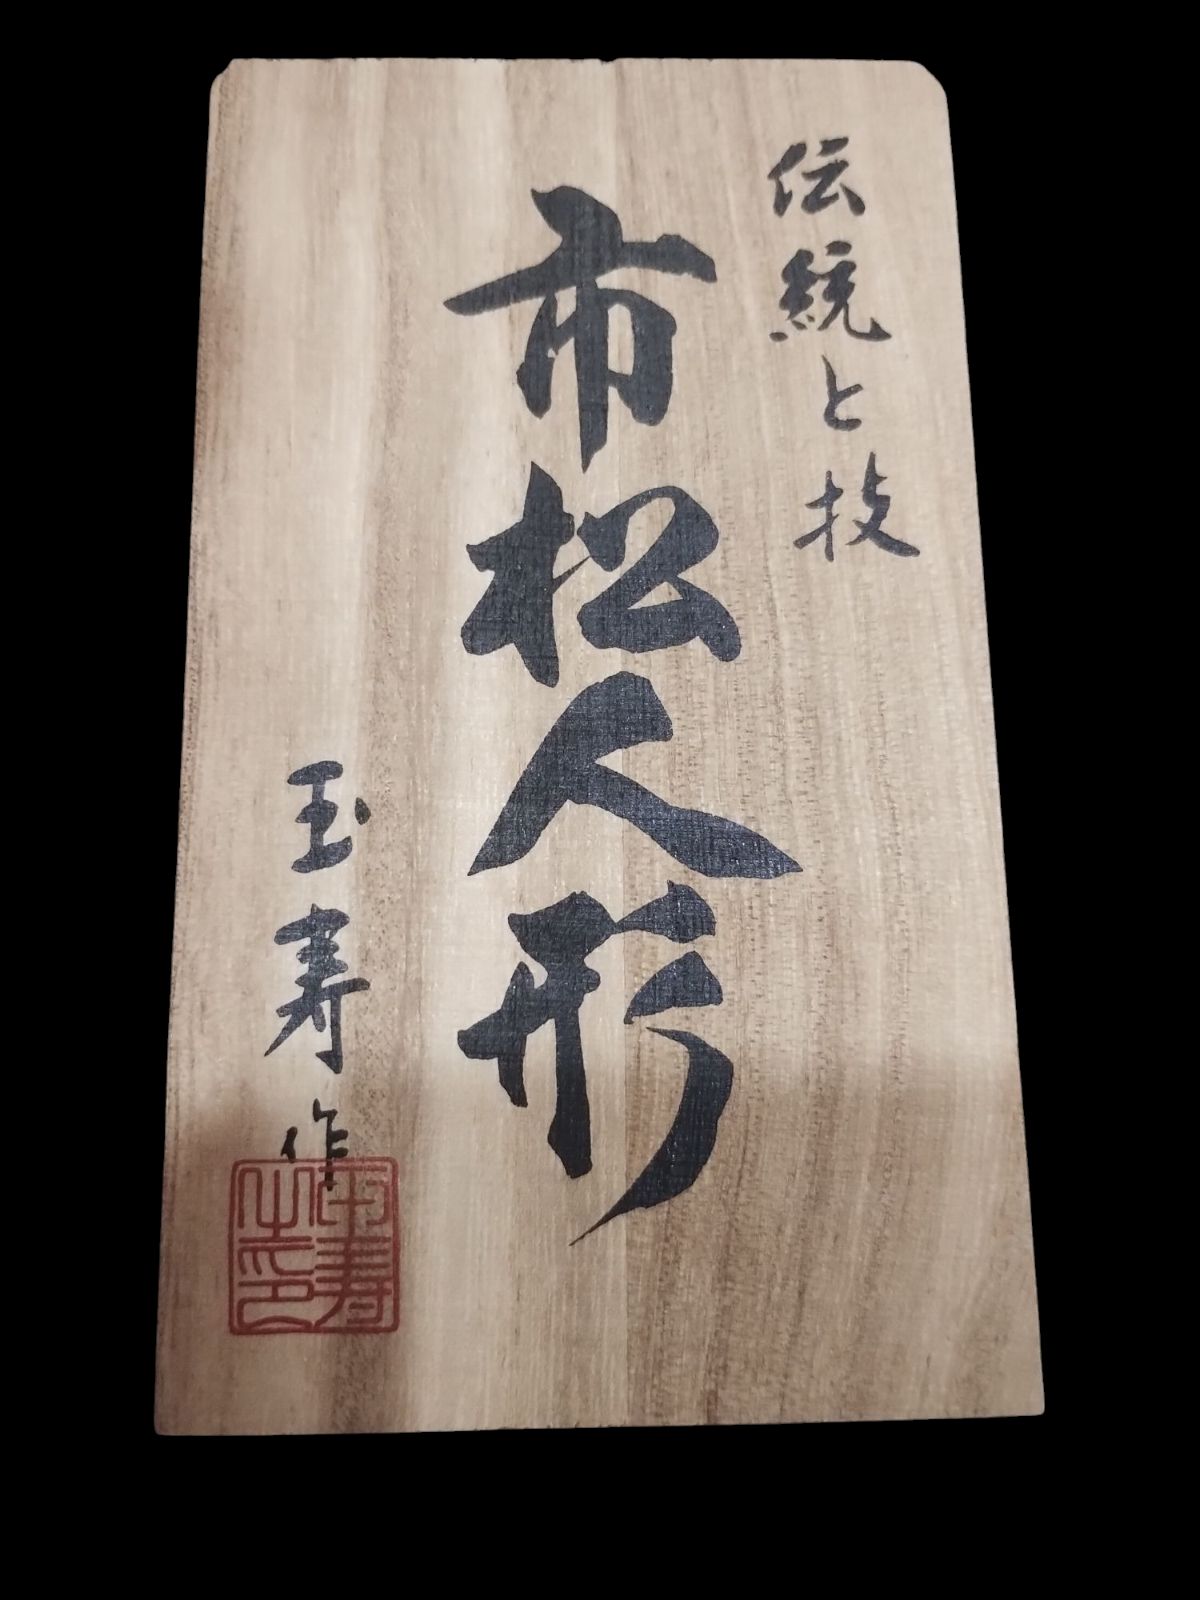 伝統と技
市松人形
玉寿作
玉寿之印